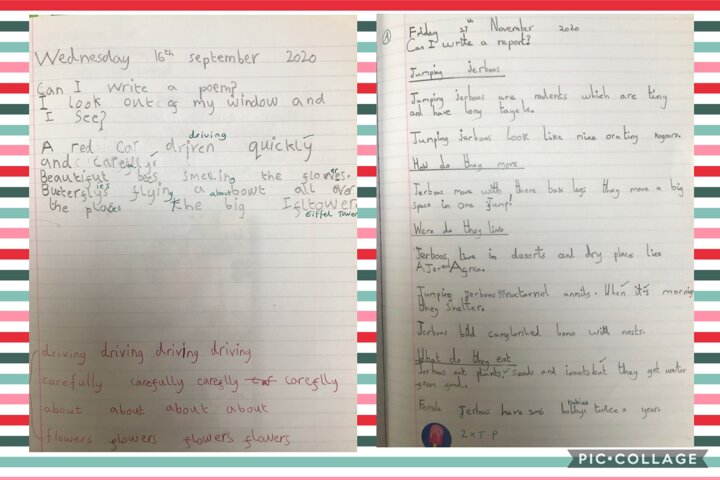 Wednesday 16th september 2020
Can I write a poem?
I look out of my window and
I see?
driving
A red car driven quickly
and carefly.
Beautiful bees smeling the flowers.
Butterflys flying a about abowt all over
the places the big Ifltower
Eiffel Tower
driving driving driving driving
carefully carefully careflly careflly
about about about about
flowers flowers flowers flowers
Friday 27th November 2020
Can I write a report?
Jumping Jerboas
Jumping jerboas are rodents which are tiny
and have long
Jumping jerboas look like mice
How do they move
Jerboas move with there bak legs they move a big
space in one jump!
Were do they live
Jerboas live in deserts and dry place like
Jumping Jerboas . When it's morning
they shelter.
Jerboas with nests.
What do they eat
Jerboas eat plants, seads and but they get water
from
babies
Jerboas have twice a year.
2 x T P
PIC•COLLAGE